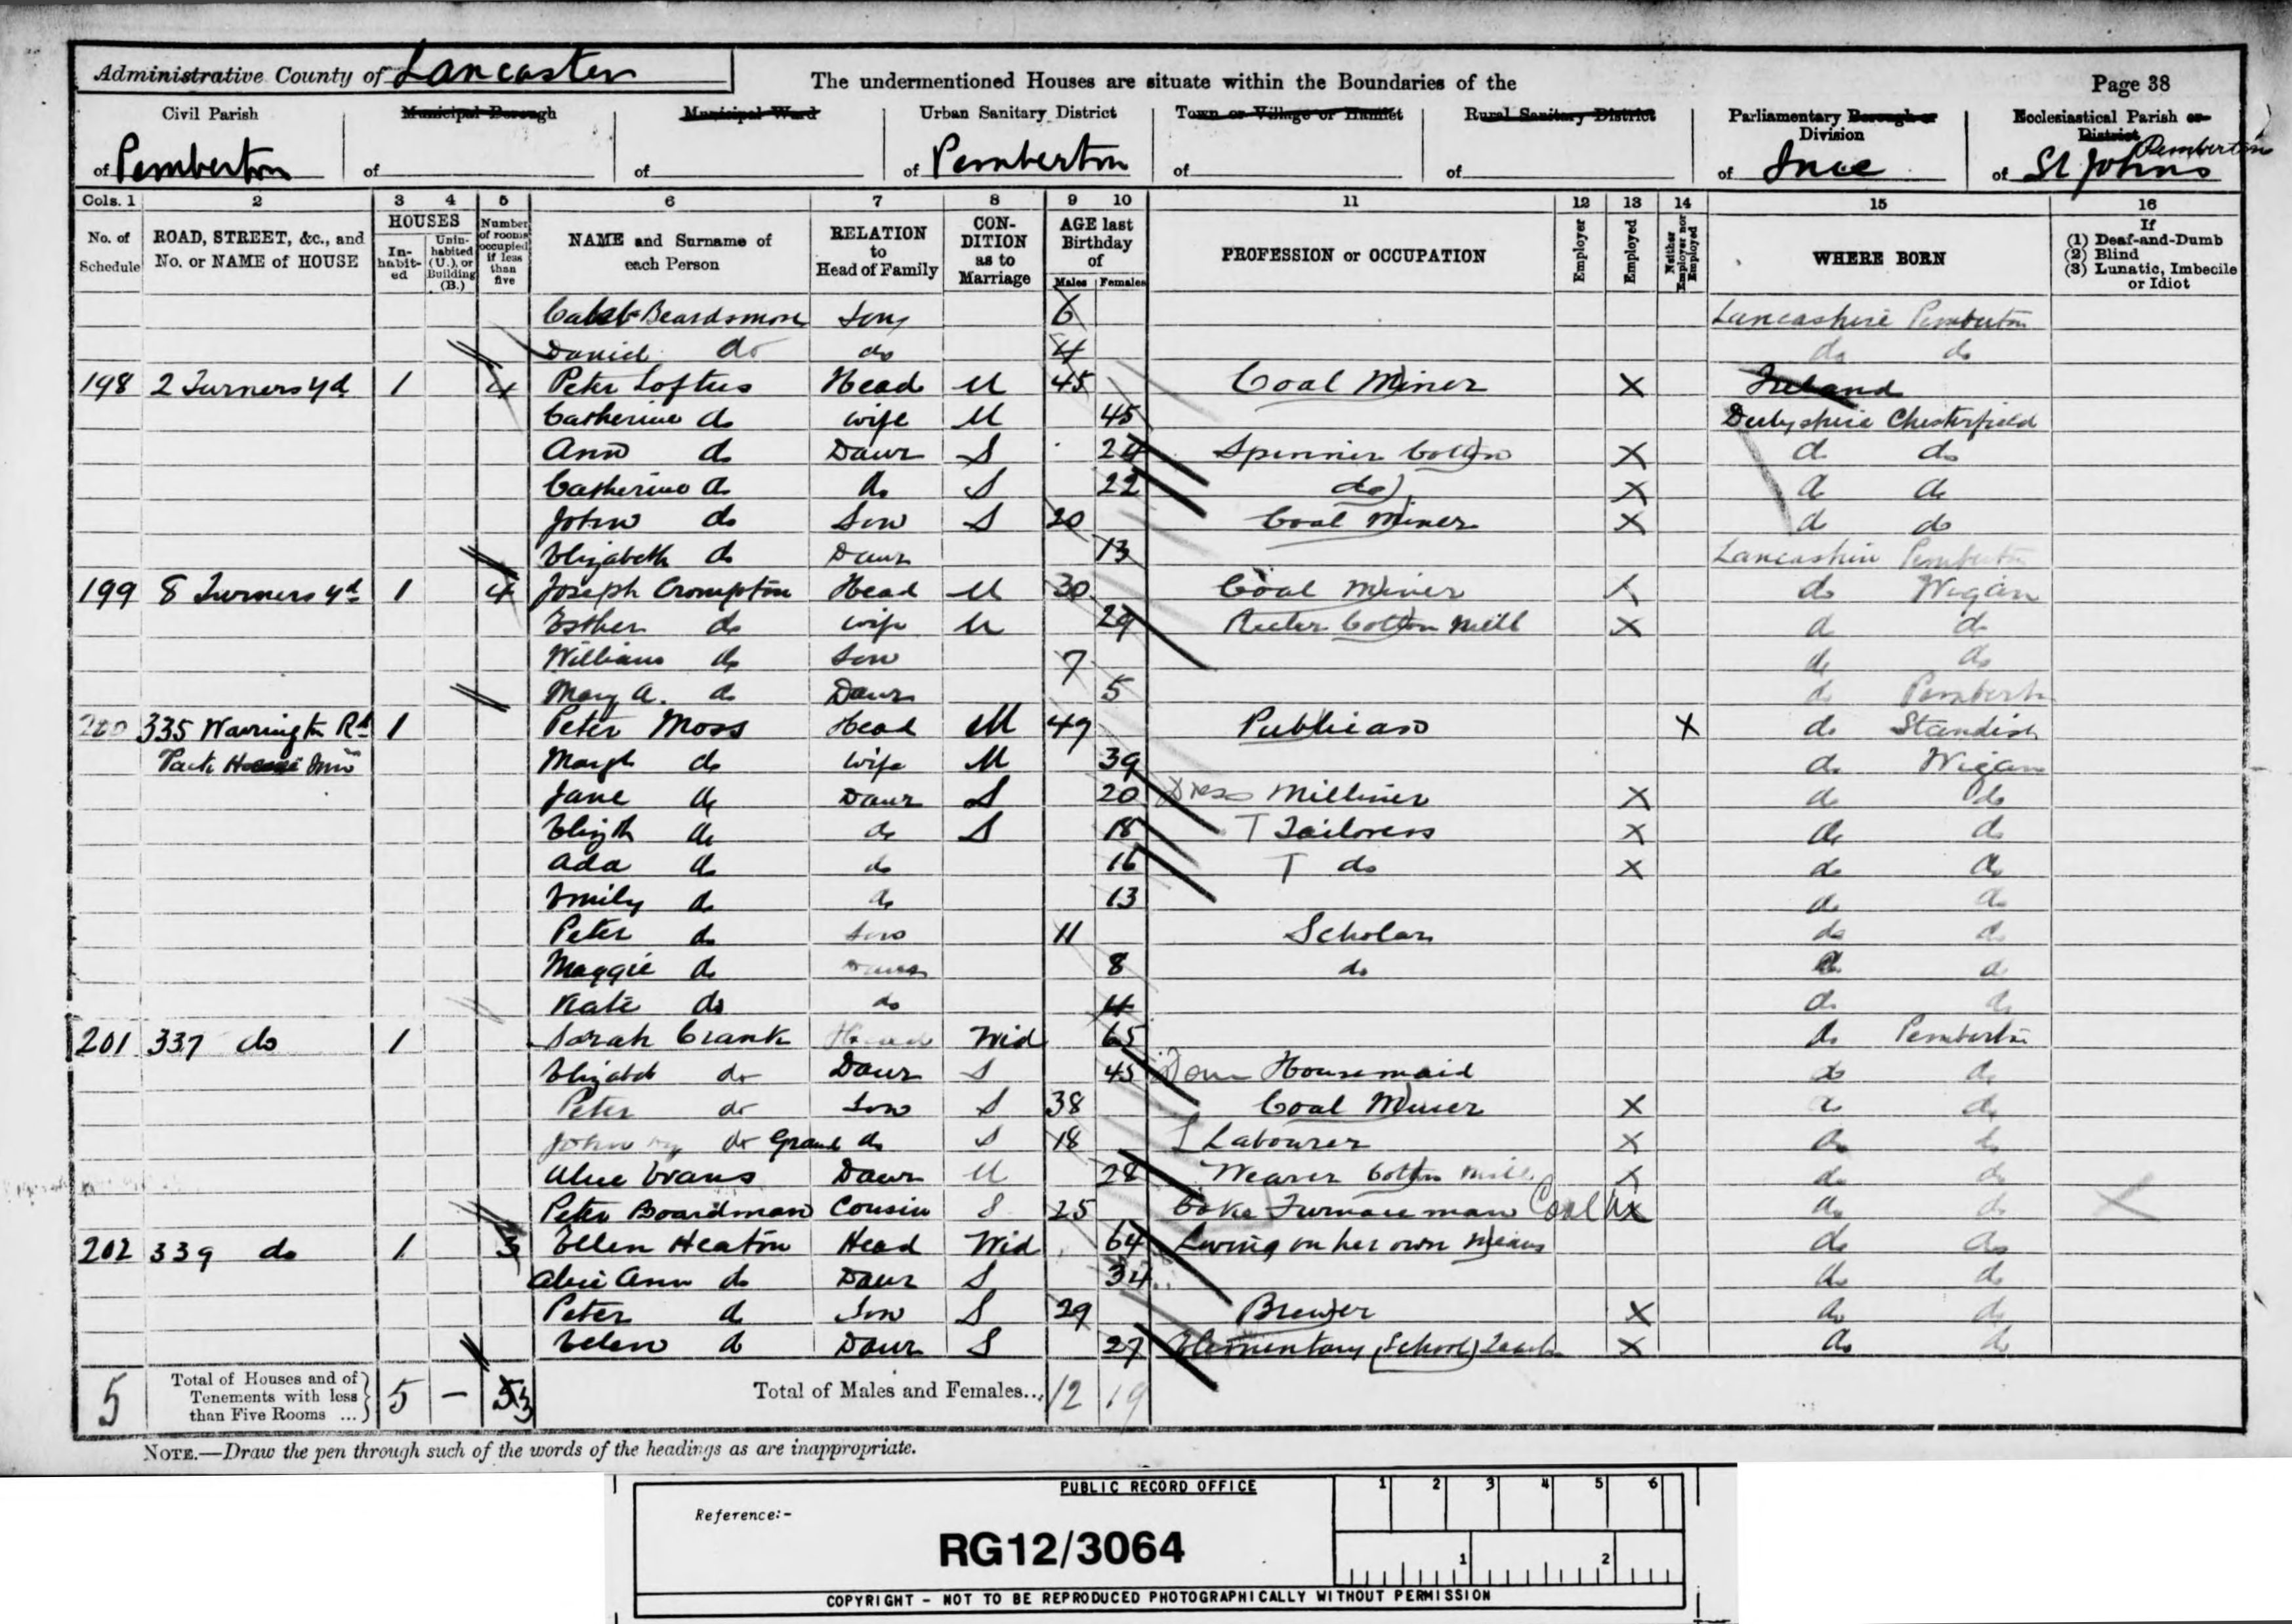 Administrative County of Lancaster
The undermentioned Houses are situate within the Boundaries of the
Page 38
Civil Parish of Pemberton
Municipal Borough of
Municipal Ward of
Urban Sanitary District of Pemberton
Town or Village or Hamlet of
Rural Sanitary District of
Parliamentary Borough or Division of Ince
Ecclesiastical Parish or District of St Johns Pemberton
Cols. 1 2 3 4 5 6 7 8 9 10 11 12 13 14 15 16
No. of Schedule
ROAD, STREET, &c., and No. or NAME of HOUSE
HOUSES
In-habit-ed
Unin-habited (U.), or Building (B.)
Number of rooms occupied if less than five
NAME and Surname of each Person
RELATION to Head of Family
CON-DITION as to Marriage
AGE last Birthday of
Males Females
PROFESSION or OCCUPATION
Employer
Employed
Neither Employer nor Employed
WHERE BORN
If
(1) Deaf-and-Dumb
(2) Blind
(3) Lunatic, Imbecile or Idiot
Caleb Beardsmore Son 6 Lancashire Pemberton
Daniel do do 4 do do
198 2 Turners yd 1 4 Peter Loftus Head M 45 Coal Miner X Ireland
Catherine do Wife M 45 Derbyshire Chesterfield
Ann do Daur S 24 Spinner Cotton X do do
Catherine do do S 22 do X do do
John do Son S 20 Coal Miner X do do
Elizabeth do Daur 13 Lancashire Pemberton
199 8 Turners yd 1 4 Joseph Crompton Head M 30 Coal Miner X do Wigan
Esther do Wife M 29 Cotton Mill X do do
William do Son 7 do do
Mary A. do Daur 5 do Pemberton
200 335 Warrington Rd 1 Peter Moss Head M 49 Publican X do Standish
Inn Margt do Wife M 39 do Wigan
Jane do Daur S 20 Dress Milliner X do do
Elizth do do S 18 T Tailoress X do do
Ada do do 16 T do X do do
Emily do do 13 do do
Peter do Son 11 Scholar do do
Maggie do Daur 8 do do do
Kate do do 4 do do
201 337 do 1 Sarah Crank Head Wid 65 do Pemberton
Elizabeth do Daur S 45 Dom Housemaid do do
Peter do Son S 38 Coal Miner X do do
John Hy do Grand do S 18 Labourer X do do
Alice Evans Daur M 28 Weaver Cotton Mill X do do
Peter Boardman Cousin S 25 Coke Furnaceman Coal X do do
202 339 do 1 3 Ellen Heaton Head Wid 64 Living on her own Means do do
Alice Ann do Daur S 34 do do
Peter do Son S 29 Brewer X do do
Ellen do Daur S 27 Elementary (School) Teacher X do do
5 Total of Houses and of Tenements with less than Five Rooms ... 5 — 3 Total of Males and Females... 12 19
NOTE.—Draw the pen through such of the words of the headings as are inappropriate.
PUBLIC RECORD OFFICE
1 2 3 4 5 6
Reference:-
RG12/3064
1 2
COPYRIGHT - NOT TO BE REPRODUCED PHOTOGRAPHICALLY WITHOUT PERMISSION